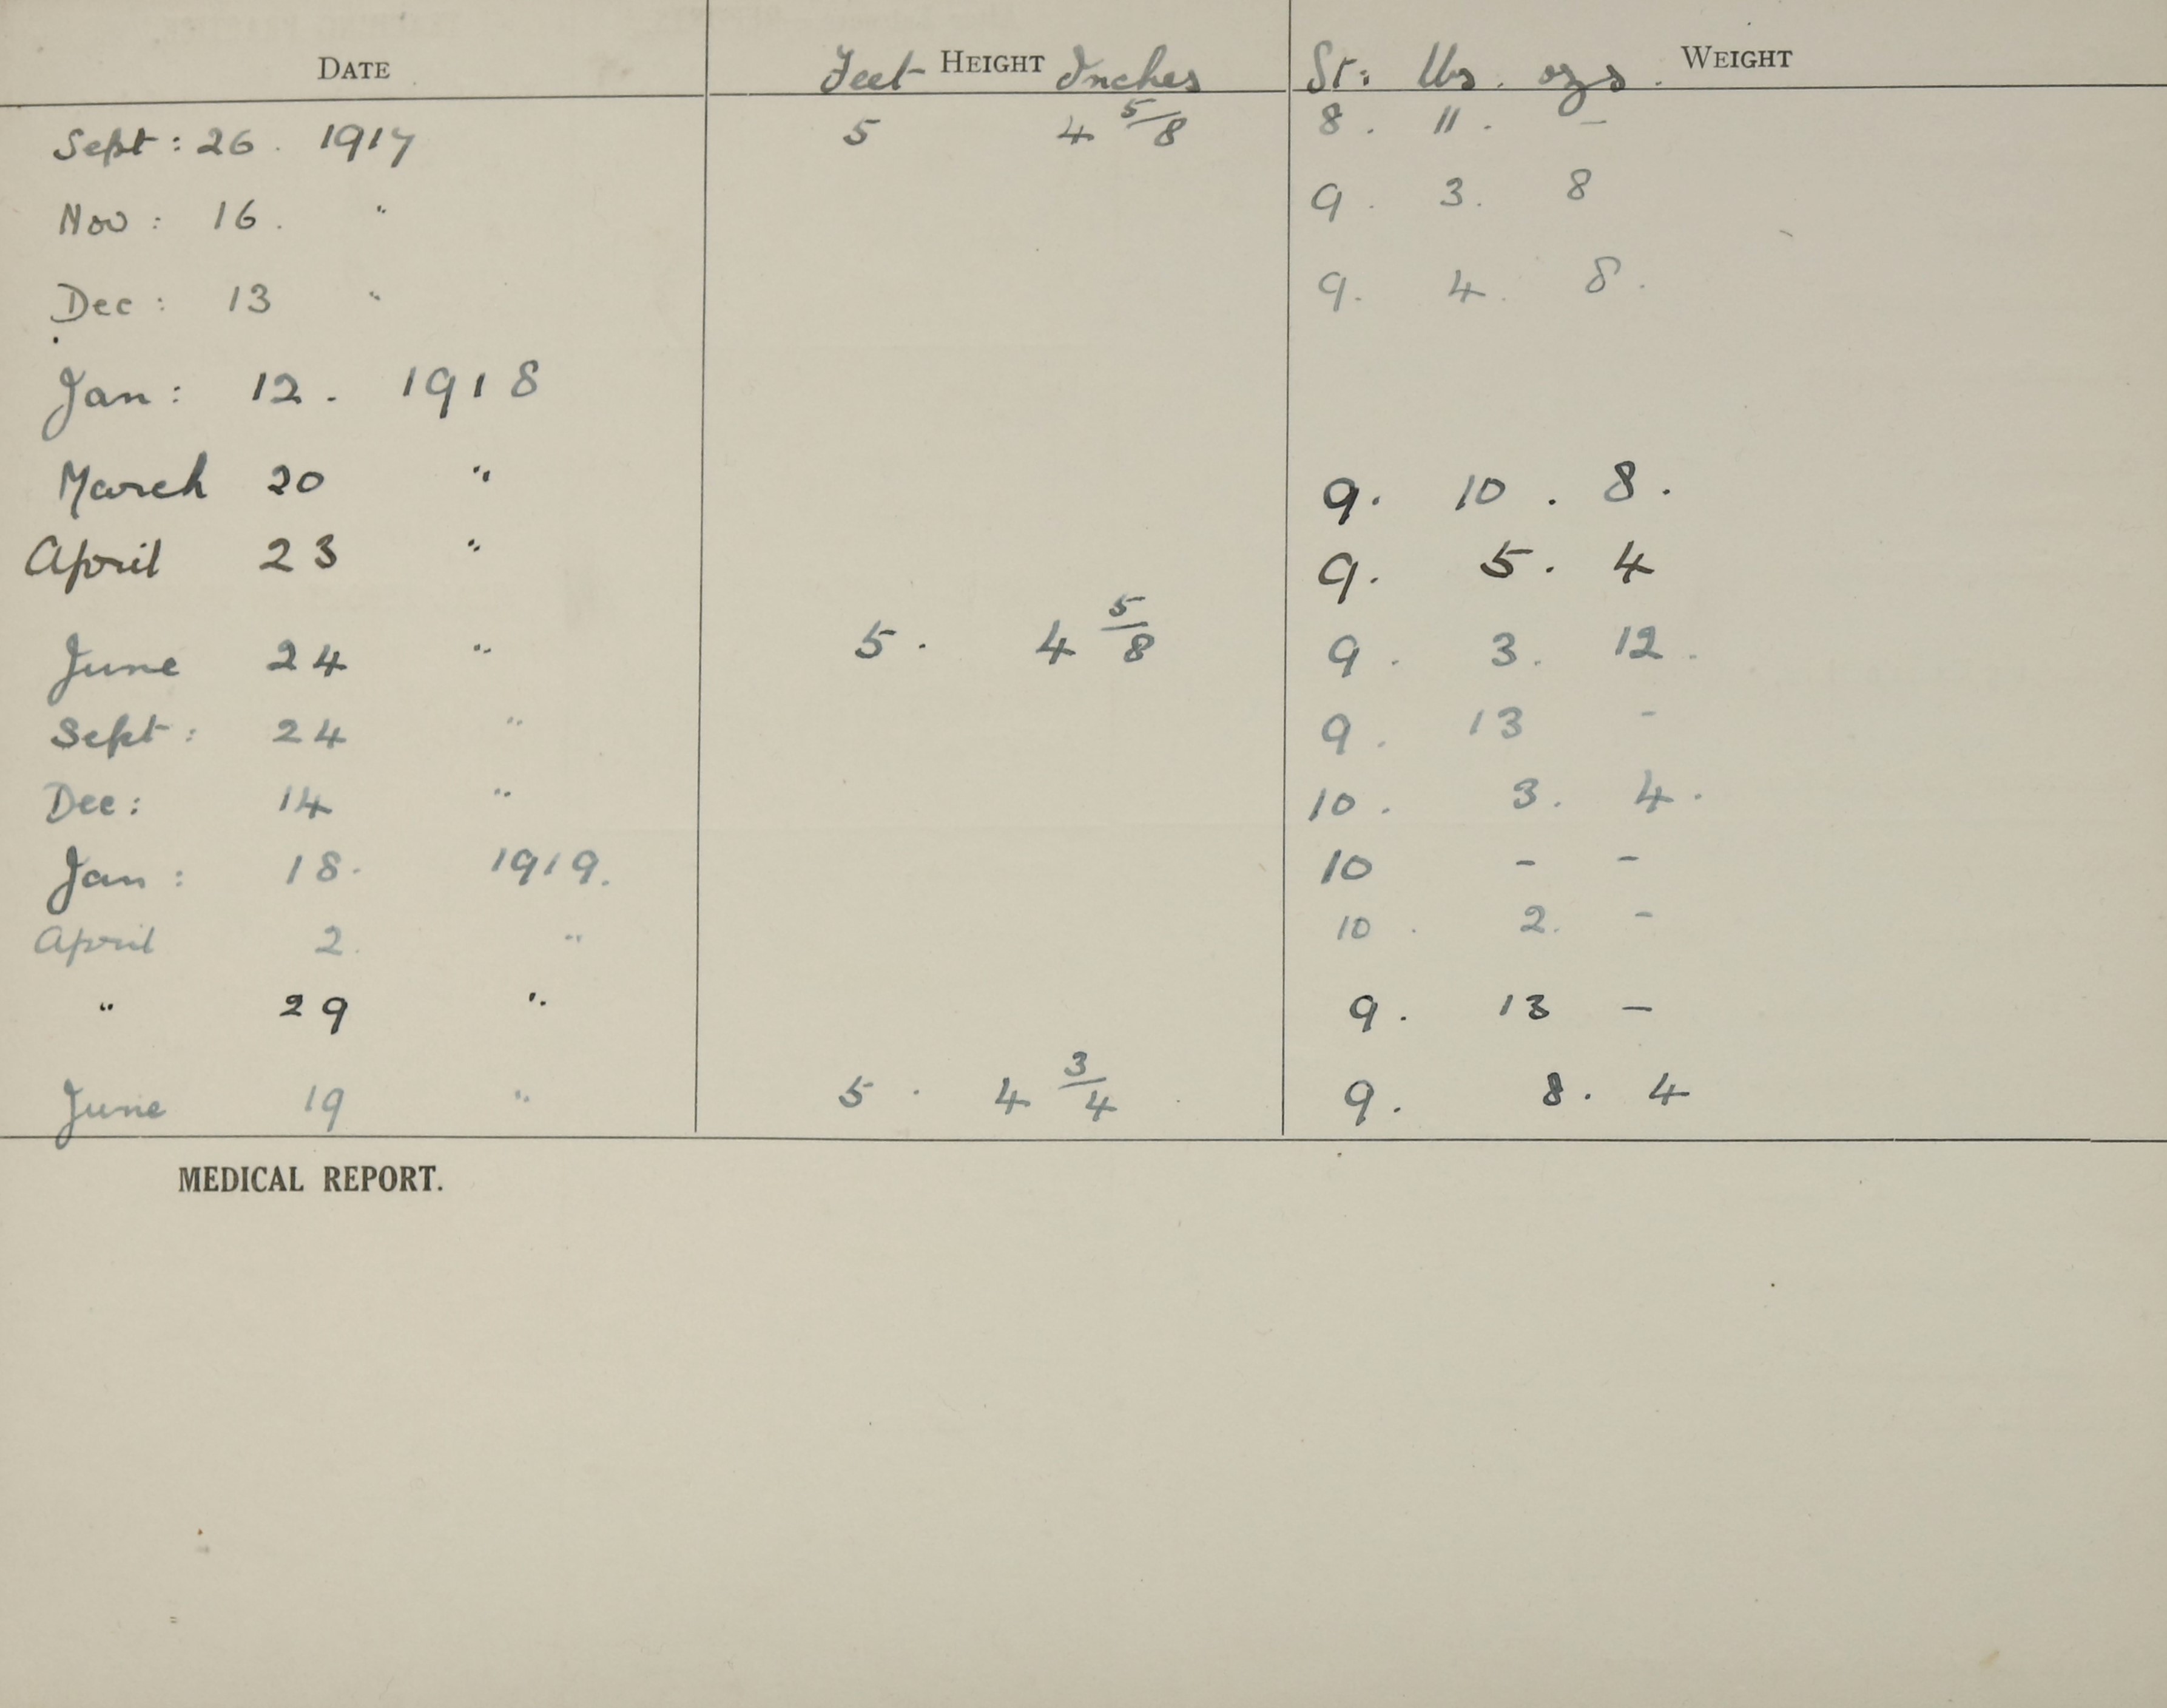 DATE Feet HEIGHT Inches St: lbs. ozs. WEIGHT
Sept: 26. 1917 5 4 5/8 8. 11. –
Nov: 16. " 9. 3. 8
Dec: 13 " 9. 4. 8.
Jan: 12. 1918
March 20 " 9. 10. 8.
April 23 " 9. 5. 4
June 24 " 5. 4 5/8 9. 3. 12.
Sept: 24 " 9. 13 -
Dec: 14 " 10. 3. 4.
Jan: 18. 1919. 10 - -
April 2. " 10. 2. -
" 29 " 9. 13 –
June 19 " 5. 4 3/4 9. 8. 4
MEDICAL REPORT.